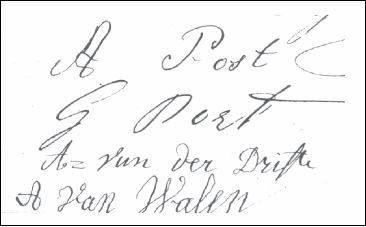 A Post
G Post
A= van der Drift
A Van Walen